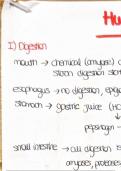 Hu
I) Digestion
mouth → chemical (amylase)
starch digestion star
esophagus → no digestion, epig
stomach → gastric juice (HC
pepsinogen -
small intestine → all digestion
amylases, proteases